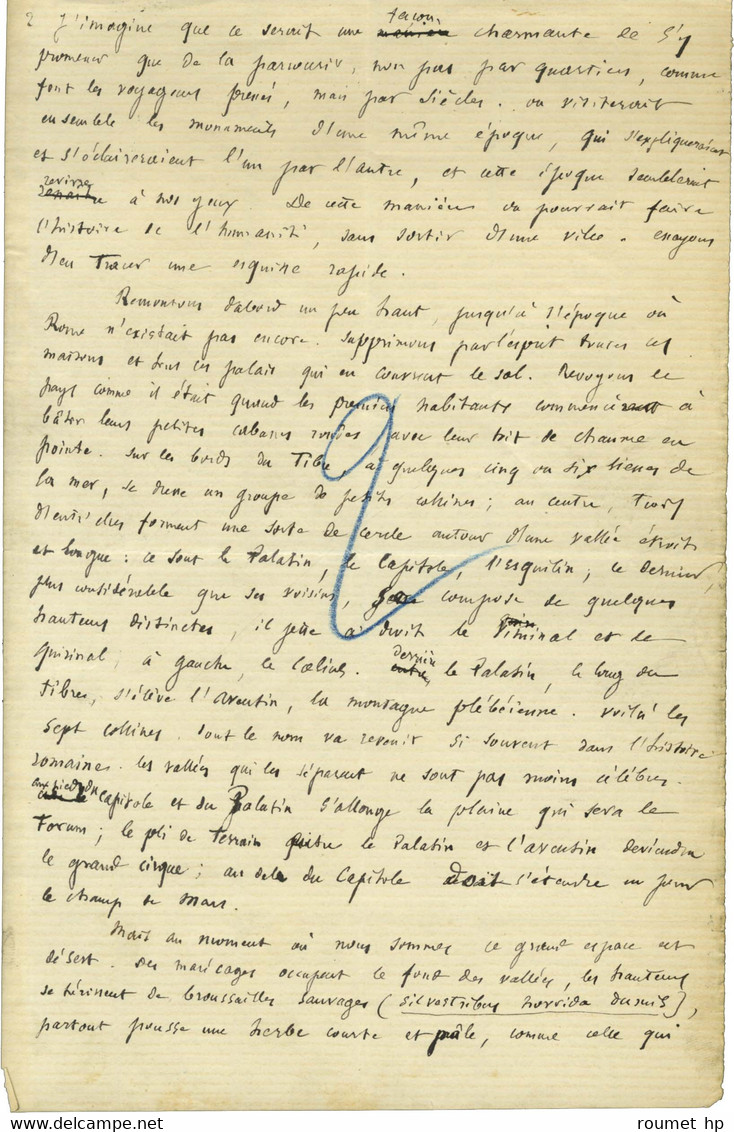 2 J'imagine que ce serait une façon charmante de s'y
promener que de la parcourir, non pas par quartiers, comme
font les voyageurs pressés, mais par siècles. on visiterait
ensemble les monuments d'une même époque, qui s'expliqueraient
et s'éclaireraient l'un par l'autre, et cette époque semblerait
revivre à nos yeux. De cette manière on pourrait faire
l'histoire de l'humanité, sans sortir d'une ville. essayons
d'en tracer une esquisse rapide.
Remontons d'abord un peu haut, jusqu'à l'époque où
Rome n'existait pas encore. supprimons par l'esprit toutes ces
maisons et tous ces palais qui en couvrent le sol. Revoyons le
pays comme il était quand les premiers habitants commencèrent à
bâtir leurs petites cabanes rondes avec leur toit de chaume en
pointe. sur les bords du Tibre, à quelques cinq ou six lieues de
la mer, se dresse un groupe de petites collines ; au centre, trois
d'entr'elles forment une sorte de cercle autour d'une vallée étroite
et longue : ce sont le Palatin, le Capitole, l'Esquilin ; ce dernier,
plus considérable que ses voisins, se compose de quelques
hauteurs distinctes, il jette à droite le Viminal et le
quirinal, à gauche, le Cælius. derrière le Palatin, le long du
Tibre, s'élève l'aventin, la montagne plébéienne. voilà les
sept collines dont le nom va revenir si souvent dans l'histoire
romaine. les vallées qui les séparent ne sont pas moins célèbres.
aux pieds du capitole et du Palatin s'allonge la plaine qui sera le
Forum ; le pli de terrain entre le Palatin et l'aventin deviendra
le grand cirque ; au delà du Capitole doit s'étendre un jour
le champ de Mars.
Mais au moment où nous sommes ce grand espace est
désert. Des marécages occupent le fond des vallées, les hauteurs
se hérissent de broussailles sauvages (silvestribus horrida dumis),
partout pousse une herbe courte et pâle, comme celle qui
© roumet hp